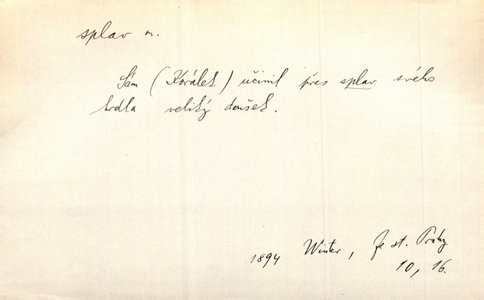 splav m.
Sám (Korálek) učinil přes splav svého
hrdla veliký doušek.
1894 Winter, Ze st. Prahy
10, 16.